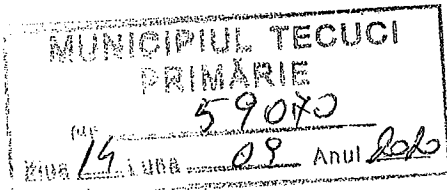 MUNICIPIUL TECUCI
PRIMĂRIE
Nr. 59070
Ziua 14 Luna 09 Anul 2020